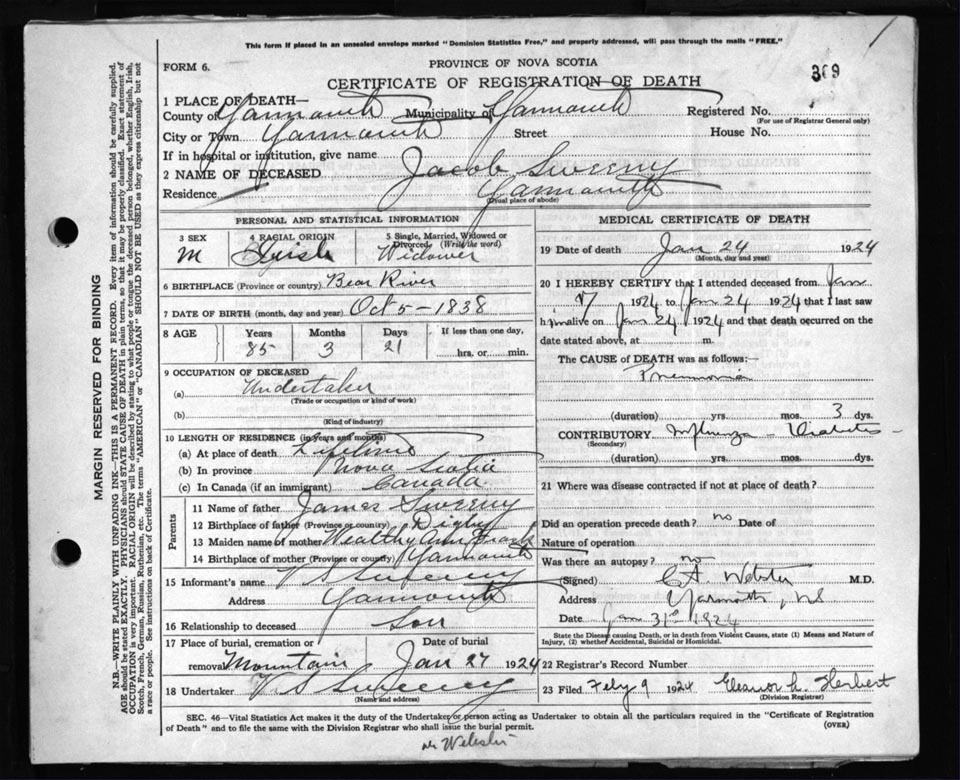 This form if placed in an unsealed envelope marked "Dominion Statistics Free," and properly addressed, will pass through the mails "FREE."
FORM 6.
PROVINCE OF NOVA SCOTIA
309
CERTIFICATE OF REGISTRATION OF DEATH
1 PLACE OF DEATH—
County of Yarmouth Municipality of Yarmouth Registered No.
(For use of Registrar General only)
City or Town Yarmouth Street House No.
If in hospital or institution, give name
2 NAME OF DECEASED Jacob Sweeny
Residence Yarmouth
(Usual place of abode)
PERSONAL AND STATISTICAL INFORMATION
3 SEX 4 RACIAL ORIGIN 5 Single, Married, Widowed or Divorced. (Write the word)
M Irish Widower
6 BIRTHPLACE (Province or country) Bear River
7 DATE OF BIRTH (month, day and year) Oct 5-1838
8 AGE Years Months Days If less than one day,
85 3 21 hrs. or min.
9 OCCUPATION OF DECEASED
(a) Undertaker
(Trade or occupation or kind of work)
(b)
(Kind of industry)
10 LENGTH OF RESIDENCE (in years and months)
(a) At place of death Lifetime
(b) In province Nova Scotia
(c) In Canada (if an immigrant) Canada
Parents
11 Name of father James Sweeny
12 Birthplace of father (Province or country) Digby
13 Maiden name of mother Wealthy Ann Frank
14 Birthplace of mother (Province or country) Yarmouth
15 Informant's name V S Sweeny
Address Yarmouth
16 Relationship to deceased Son
17 Place of burial, cremation or removal Mountain Date of burial Jan 27 1924
18 Undertaker V S Sweeny
(Name and address)
MEDICAL CERTIFICATE OF DEATH
19 Date of death Jan 24 1924
(Month, day and year)
20 I HEREBY CERTIFY that I attended deceased from Jan
7 1924 to Jan 24 1924 that I last saw
him alive on Jan 24 1924 and that death occurred on the
date stated above, at m.
The CAUSE of DEATH was as follows:—
Pneumonia
(duration) yrs. mos. 3 dys.
CONTRIBUTORY Influenza – Diabetes –
(Secondary)
(duration) yrs. mos. dys.
21 Where was disease contracted if not at place of death?
Did an operation precede death? no Date of
Nature of operation
Was there an autopsy? no
(Signed) C A Webster M.D.
Address Yarmouth, NS
Date Jan 31st 1924
State the Disease causing Death, or in death from Violent Causes, state (1) Means and Nature of Injury, (2) whether Accidental, Suicidal or Homicidal.
22 Registrar's Record Number
23 Filed Feby 9 1924 Eleanor L. Herbert
(Division Registrar)
SEC. 46—Vital Statistics Act makes it the duty of the Undertaker or person acting as Undertaker to obtain all the particulars required in the "Certificate of Registration
of Death" and to file the same with the Division Registrar who shall issue the burial permit.
(OVER)
Dr Webster
MARGIN RESERVED FOR BINDING
N.B.—WRITE PLAINLY WITH UNFADING INK—THIS IS A PERMANENT RECORD. Every item of information should be carefully supplied.
AGE should be stated EXACTLY. PHYSICIANS should STATE CAUSE OF DEATH in plain terms, so that it may be properly classified. Exact statement of
OCCUPATION is very important. RACIAL ORIGIN will be described by stating to what people or tongue the deceased person belonged, whether English, Irish,
Scotch, French, German, Russian, Ruthenian, etc. The terms "AMERICAN" or "CANADIAN" SHOULD NOT BE USED as they express citizenship but not
a race or people. See instructions on back of Certificate.